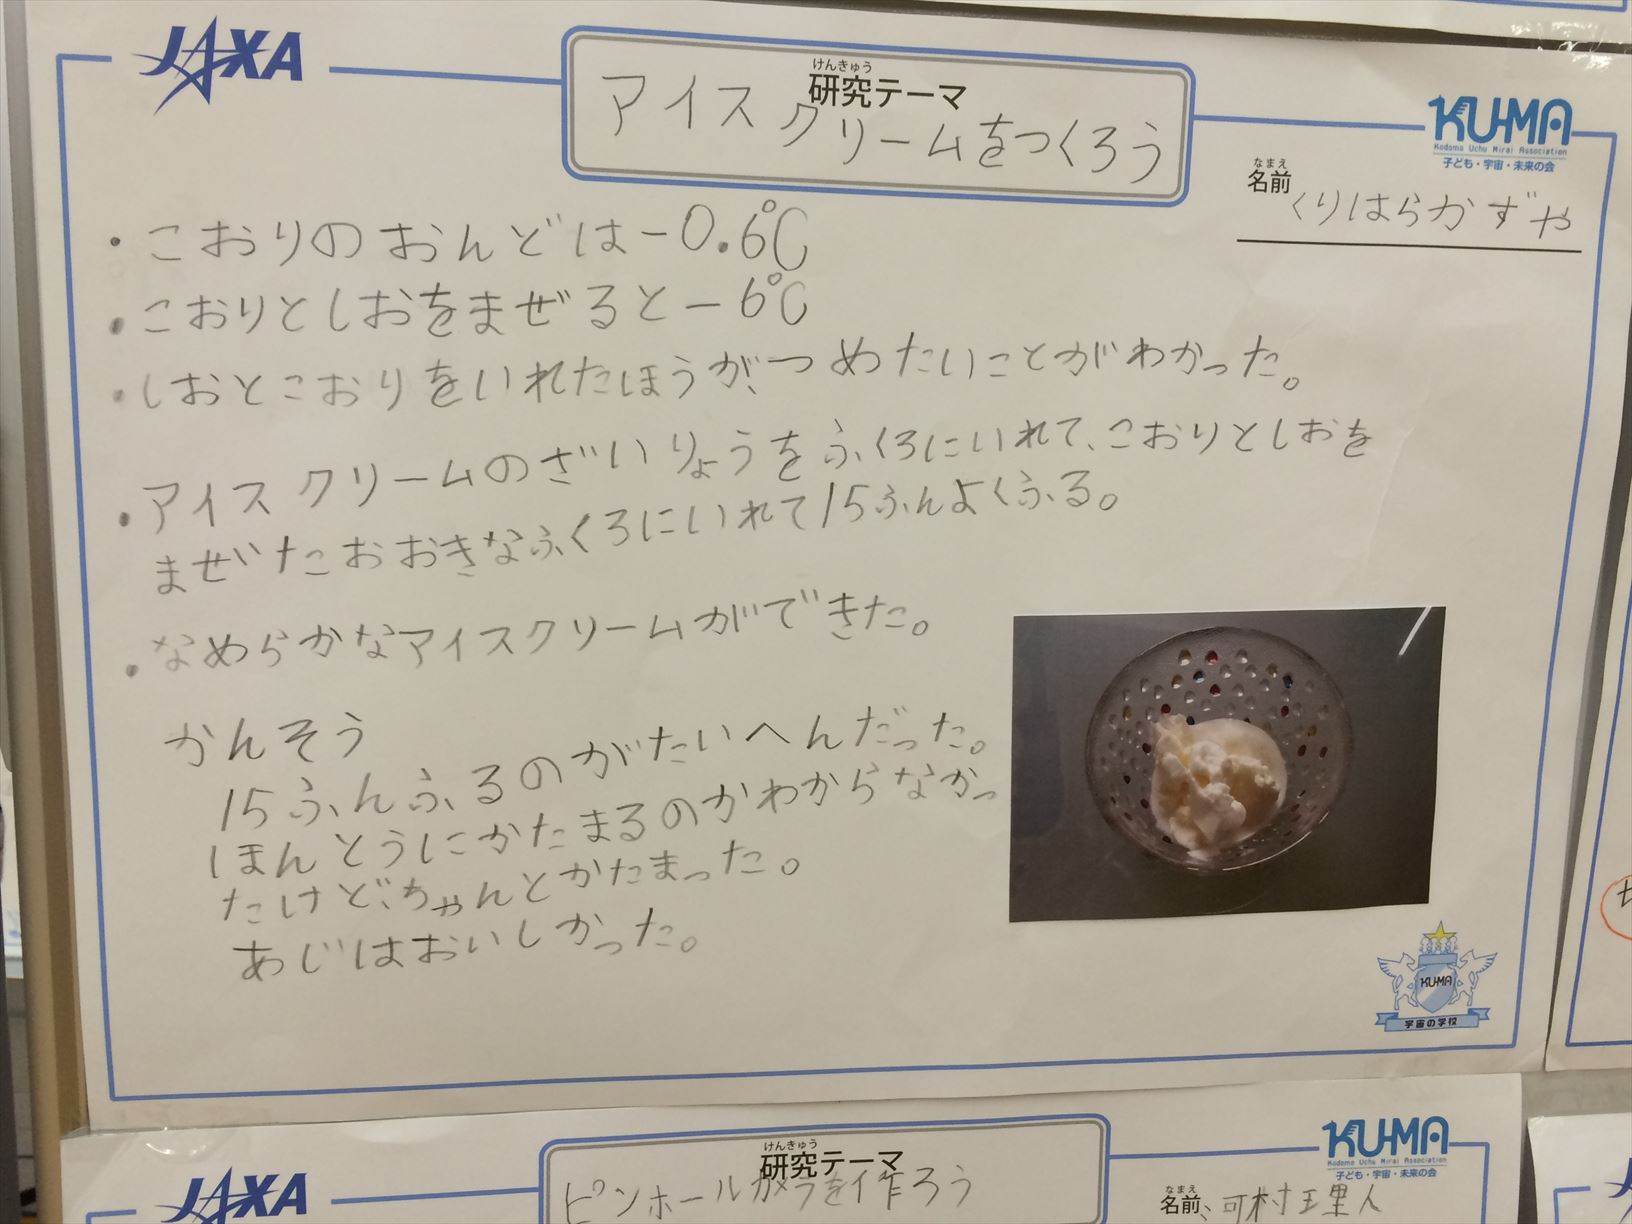 JAXA
けんきゅう
研究テーマ
アイスクリームをつくろう
KU-MA
Kodomo Uchu Mirai Association
子ども・宇宙・未来の会
なまえ
名前
くりはらかずや
・こおりのおんどは-0.6℃
・こおりとしおをまぜると-6℃
・しおとこおりをいれたほうが、つめたいことがわかった。
・アイスクリームのざいりょうをふくろにいれて、こおりとしおを
まぜたおおきなふくろにいれて15ふんよくふる。
・なめらかなアイスクリームができた。
かんそう
15ふんふるのがたいへんだった。
ほんとうにかたまるのかわからなかっ
たけど、ちゃんとかたまった。
あじはおいしかった。
KU-MA
宇宙の学校
JAXA
けんきゅう
研究テーマ
ピンホールカメラを作ろう
KU-MA
Kodomo Uchu Mirai Association
子ども・宇宙・未来の会
なまえ
名前